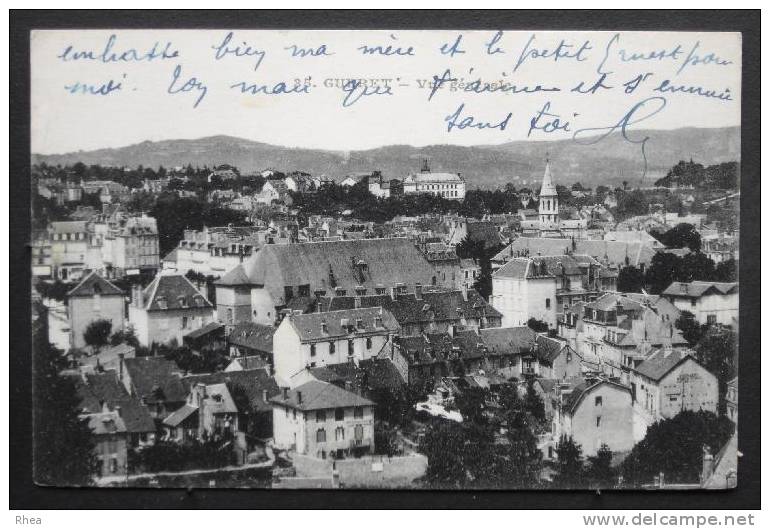 embrasse bien ma mère et le petit Ernest pour
moi. Ton mari que t'aime et s'ennui
sans toi
35. GUÉRET. — Vue générale
Rhea
http://www.delcampe.net